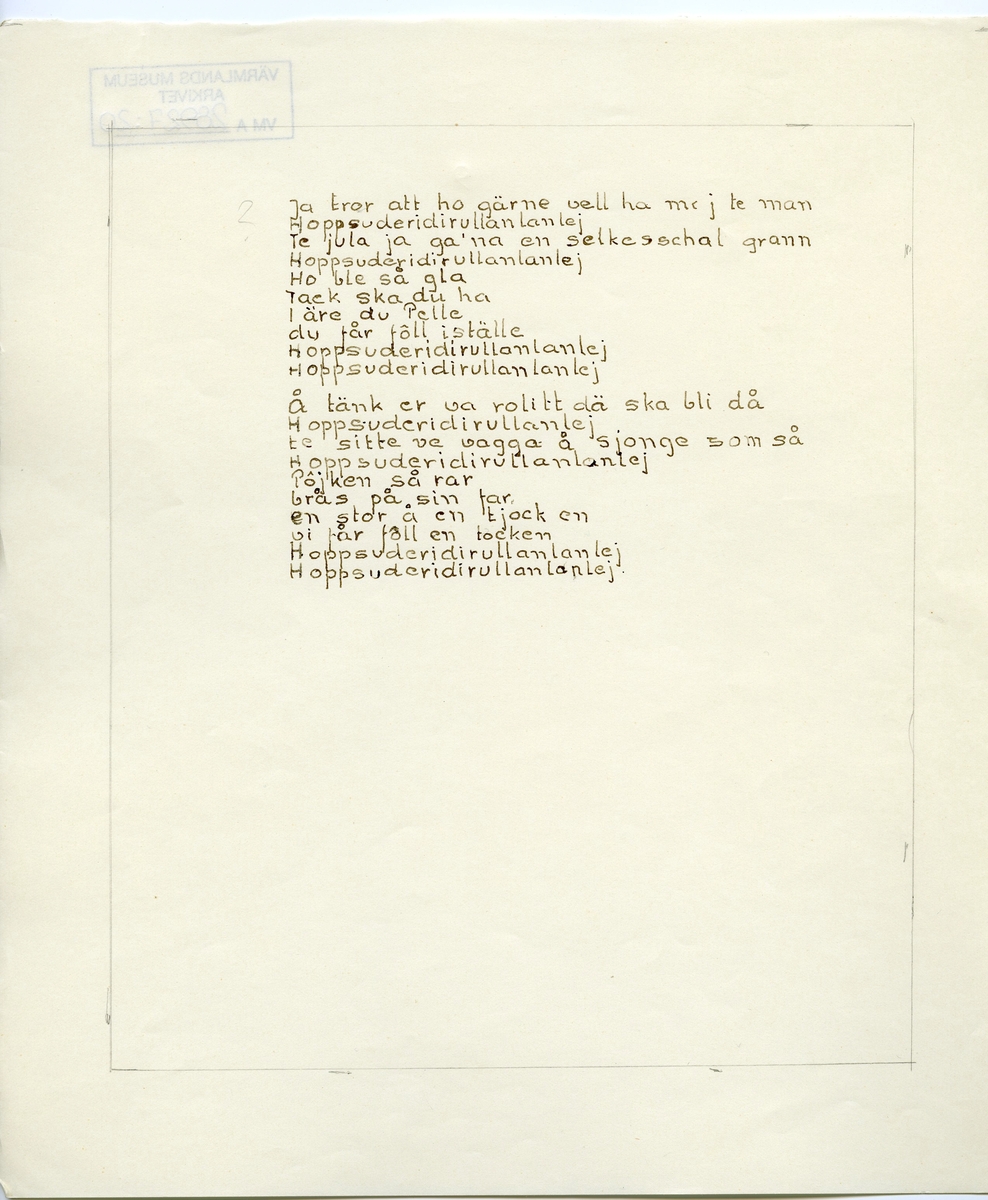 VÄRMLANDS MUSEUM
ARKIVET
VM A
2
Ja tror att ho gärne vell ha mej te man
Hoppsuderidirullanlanlej
Te jula ja ga'na en selkesschal grann
Hoppsuderidirullanlanlej
Ho ble så gla
Tack ska du ha
I äre du Pelle
du får föll iställe
Hoppsuderidirullanlanlej
Hoppsuderidirullanlanlej
Å tänk er va rolitt dä ska bli då
Hoppsuderidirullanlej
te sitte ve vagga å sjonge som så
Hoppsuderidirullanlanlej
Pôjken så rar
brås på sin far
en stor å en tjock en
vi får fôll en tocken
Hoppsuderidirullanlanlej
Hoppsuderidirullanlanlej.